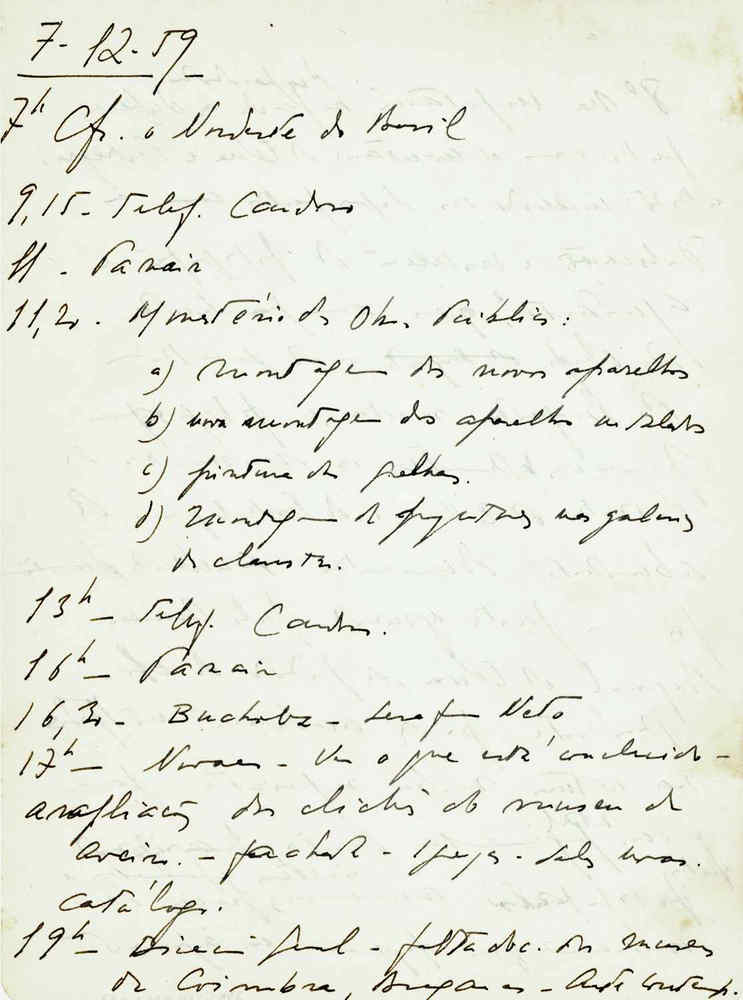 7-12-59
7h Cfr. o Nordeste do Brasil
9,15 - Telef. Cardoso
11 - Panair
11,20 - Ministério das Obras Públicas:
a) montagem dos novos aparelhos
b) nova montagem dos aparelhos instalados
c) pintura das grelhas.
d) montagem de nas galerias
do claustro.
13h - Telef. Cardoso.
16h - Panair
16,30 - Buchholz - Serafim Neto
17h - Novaes - Ver o que está concluido -
ampliação dos clichés do museu de
Aveiro. - fachada - Igreja - salas novas.
catálogo.
19h - Direcção Geral - falta doc. dos museus
de Coimbra, Bragança - Arte contemp.